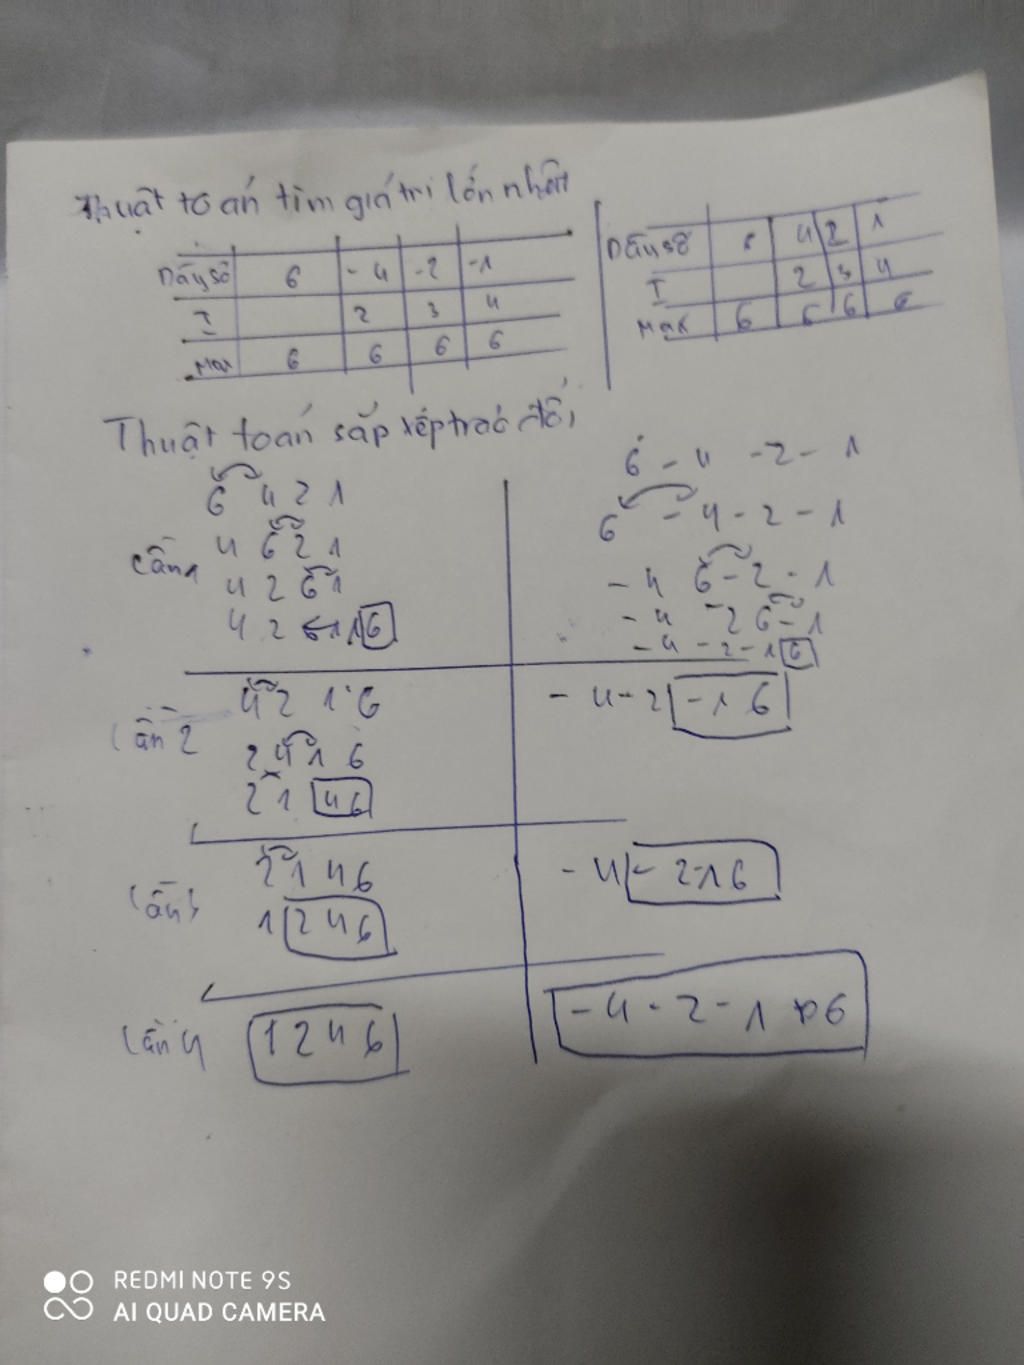 Thuật toán tìm giá trị lớn nhất
Dãy số 6 -4 -2 -1
I 2 3 4
Max 6 6 6 6
Dãy số 4 2 1
I 2 3 4
Max 6 6 6 6
Thuật toán sắp xếp tráo đổi
6 4 2 1
4 6 2 1
Lần 1
4 2 6 1
4 2 1 6
6 -4 -2 -1
6 -4 -2 -1
-4 6 -2 -1
-4 -2 6 -1
-4 -2 -1 6
Lần 2
4 2 1 6
2 4 1 6
2 1 4 6
-4 -2 -1 6
Lần 3
2 1 4 6
1 2 4 6
-4 -2 -1 6
Lần 4
1 2 4 6
-4 -2 -1 6
REDMI NOTE 9S
AI QUAD CAMERA